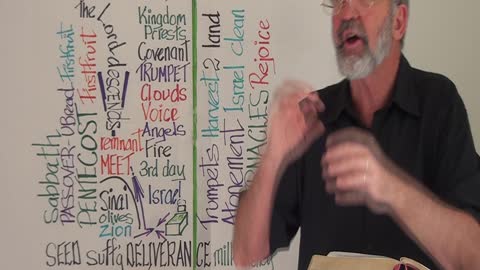 Sabbath
PASSOVER
UBread
Firstfruit
PENTECOST
Firstfruit
the
Lord
descends
remnant
MEET
Sinai
olives
Zion
Kingdom
Priests
Covenant
TRUMPET
Clouds
Voice
Angels
Fire
3rd day
Israel
Trumpets Harvest 2 land
Atonement Israel clean
Rejoice
SEED DELIVERANCE